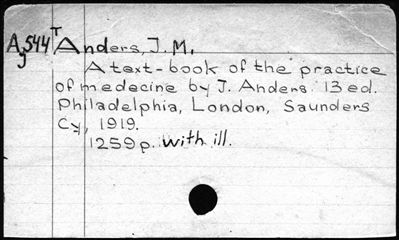 Ay544 T Anders, J. M.
A text-book of the practice
of medecine by J. Anders. 13 ed.
Philadelphia, London, Saunders
Cy, 1919.
1259 p. with ill.